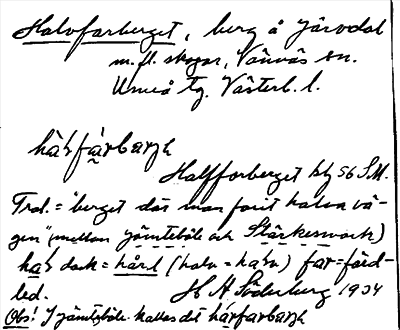 Halvfarberget, berg å Järvdal
m. fl. skogar, Vännäs sn.
Umeå tg. Västerb. l.
Halfforberget bl 56 S.M.
Trad. = "berget där man farit halva vä-
gen" (mellan Jämteböle och Stärkesmark)
dock = hård (halv = ) far = färd-
led. H A Söderberg 1934
Obs! I Jämteböle kallas det hårfarbargh